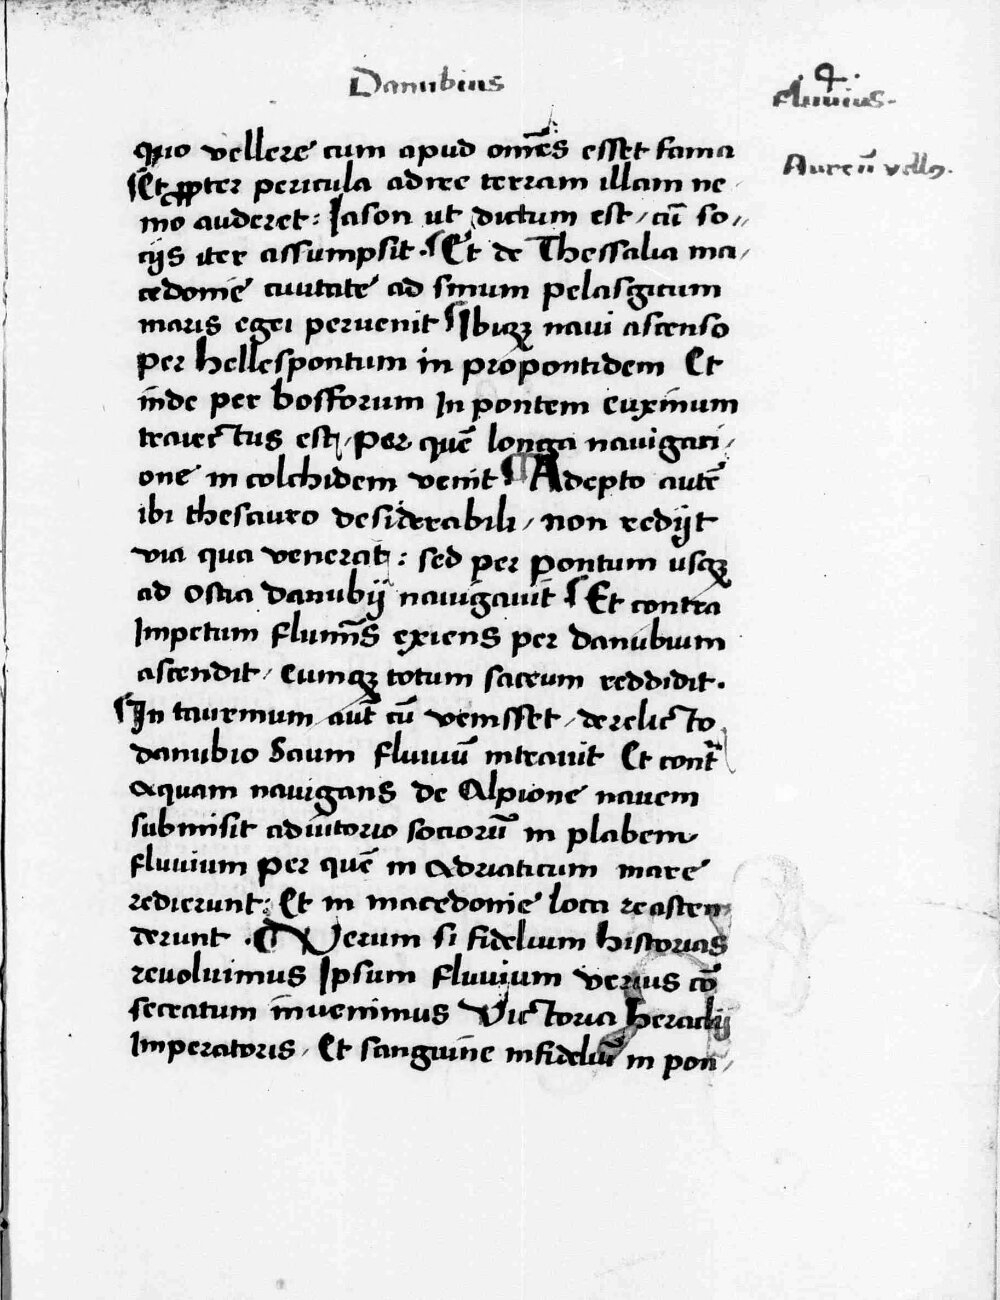 Danubius
.4.
fluuius.
Aureū vellꝰ.
quo vellere cum apud om̄es esset fama
Et ꝓpter pericula adire terram illam ne
mo auderet: Iason ut dictum est / cū so〃
cijs iter assumpsit. Et de Thessalia ma /
cedonie ciuitate ad sinum pelasgicum
maris egei peruenit Ibiqꝫ naui ascenso
per hellespontum in propontidem Et
inde per bosforum In pontem euxinum
traiectus est / per quē longa nauigati /
one in colchidem venit ¶ Adepto autē
ibi thesauro desiderabili / non redijt
via qua venerat: sed per pontum usqꝫ
ad ostia danubij nauigauit Et contra
Impetum flumīs exiens per danubium
ascendit / Cumqꝫ totum saceum reddidit.
In taurinum aut̄ cū venisset / derelicto
danubio Saum fluuiū intrauit Et cont̄
aquam nauigans de Alpione nauem
submisit adiutorio sociorū in plabem
fluuium per quē in Adriaticum mare
redierunt: Et in macedonie loca reascen
derunt . ¶ Verum si fidelium historias
reuoluimus Ipsum fluuium verius cō
secratum inuenimus Victoria heraclij
Imperatoris / Et sanguine infideliū in pon /